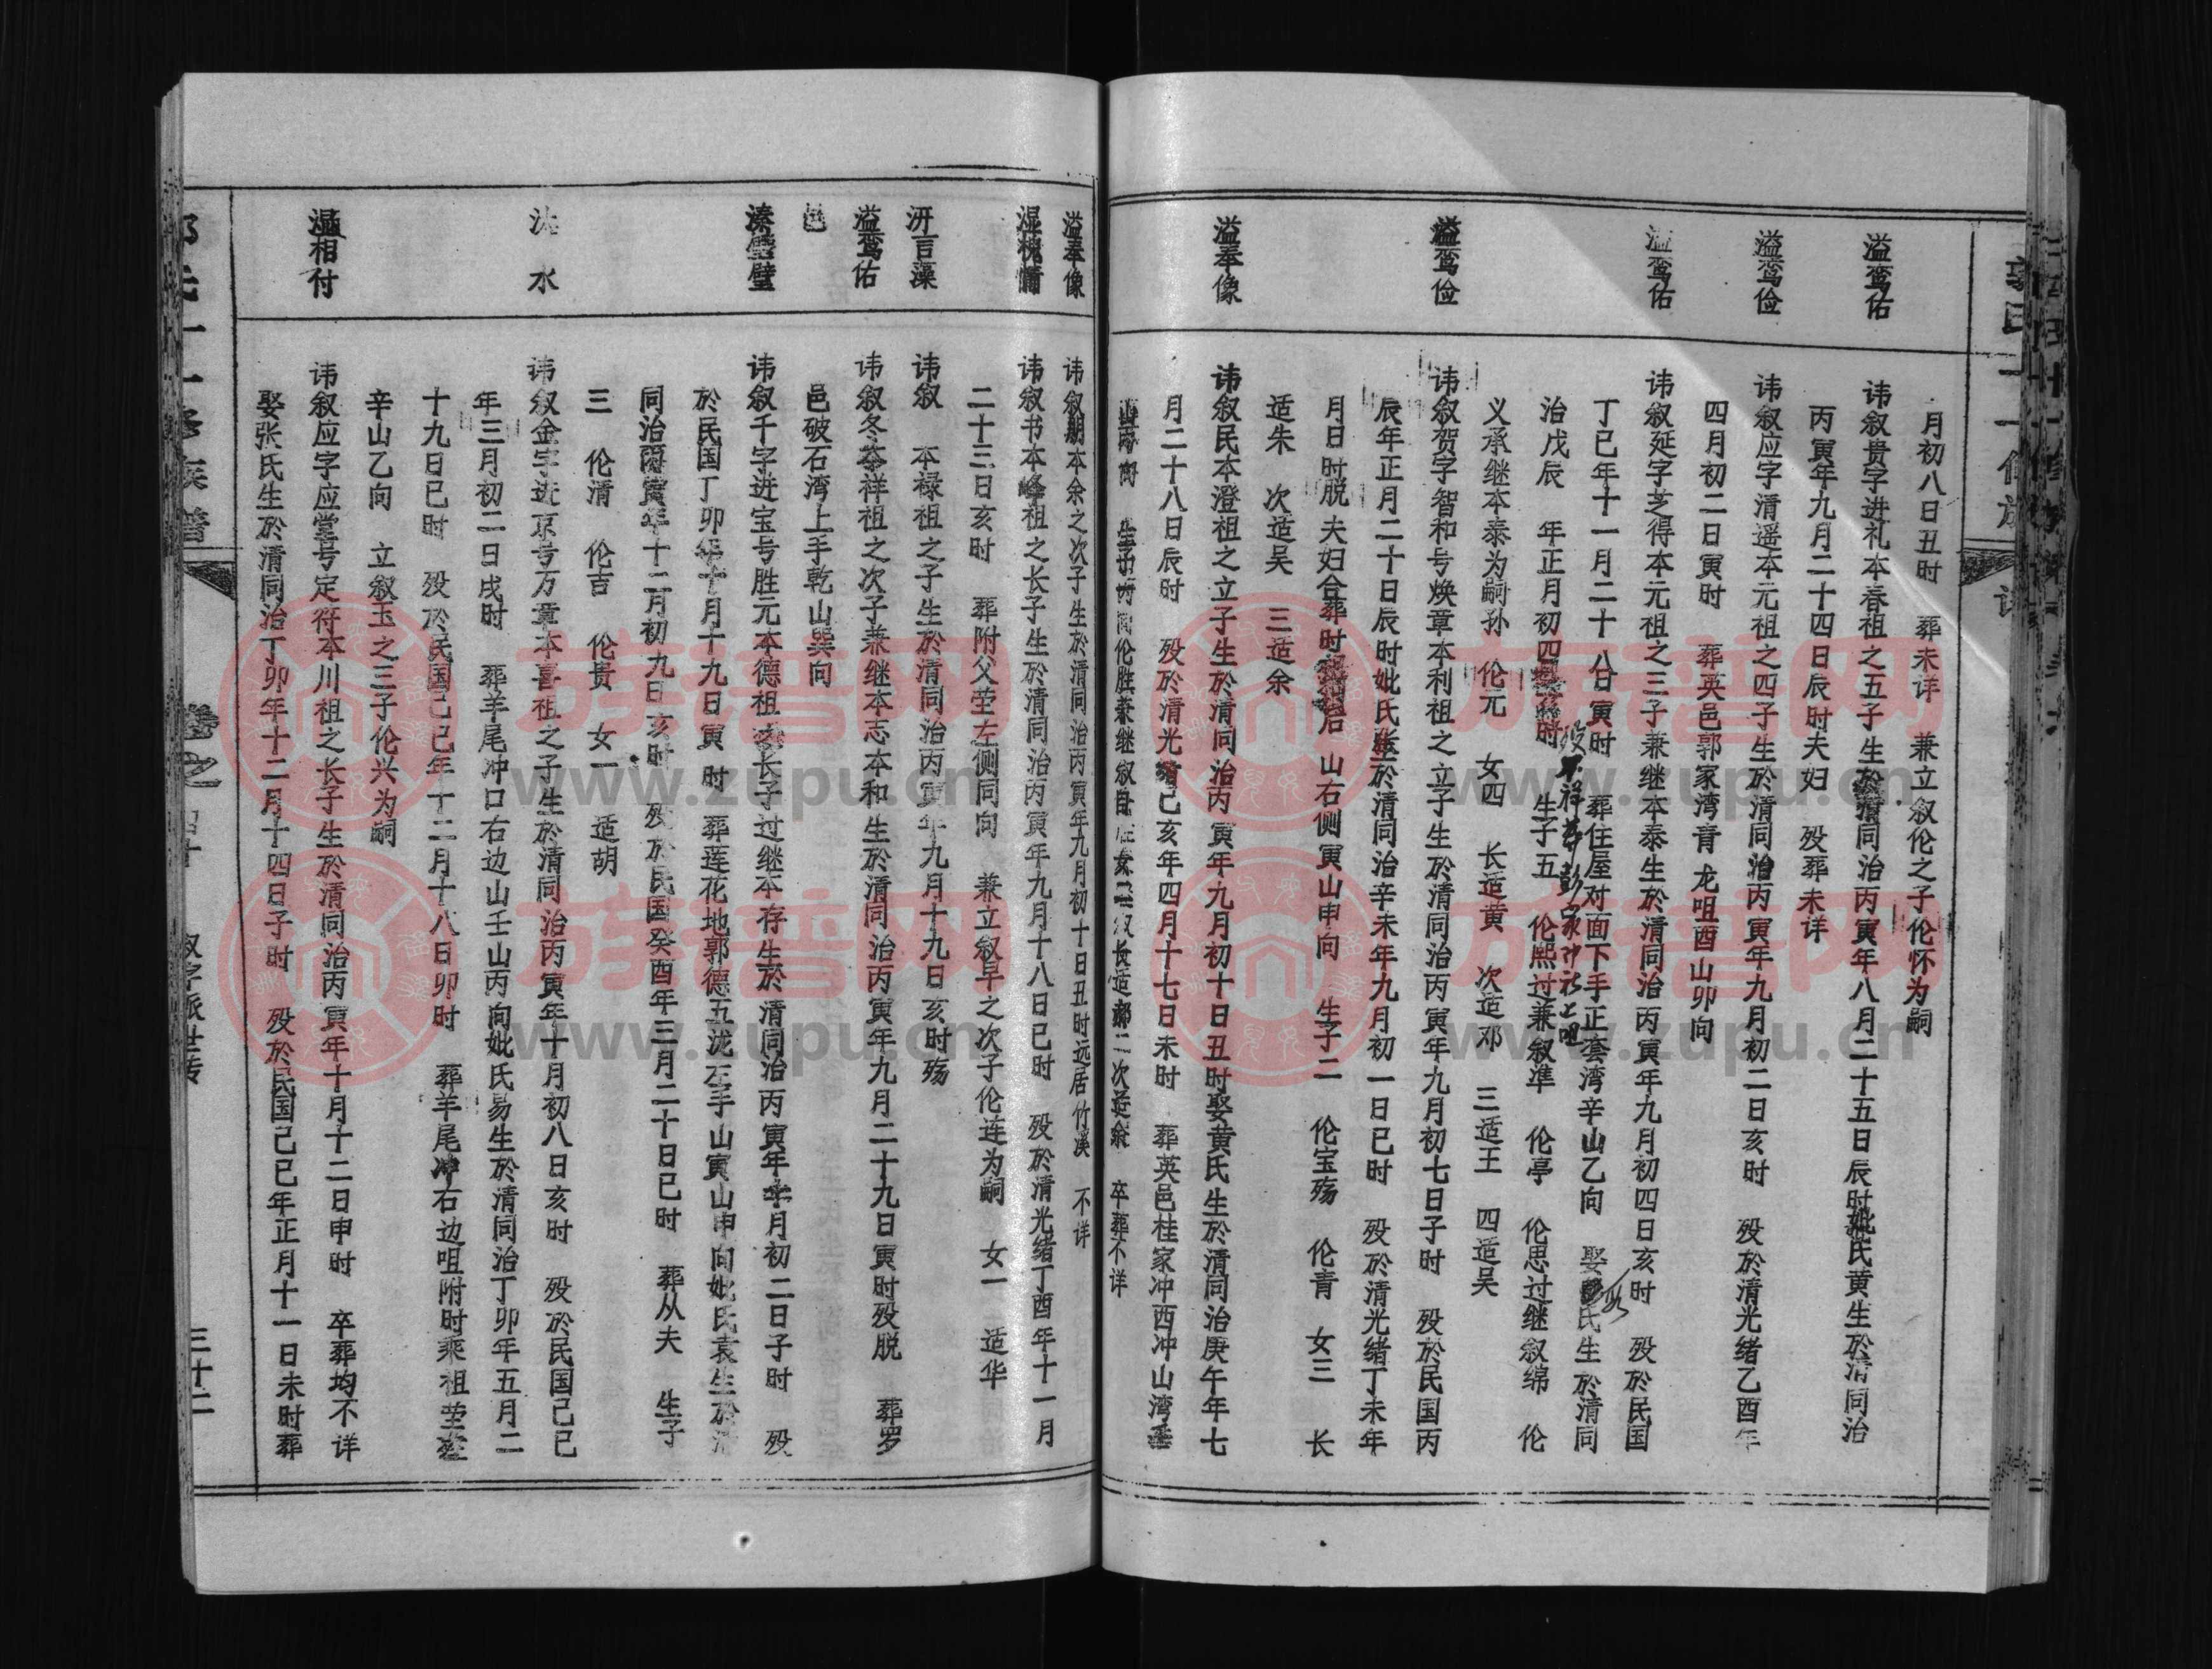 月初八日丑时　葬未详　兼立叙伦之子伦怀为嗣
溢鸾佑
讳叙贵字进礼本春祖之五子生於清同治丙寅年八月二十五日辰时妣氏黄生於清同治
丙寅年九月二十四日辰时夫妇　殁葬未详
溢鸾俭
讳叙应字清遥本元祖之四子生於清同治丙寅年九月初二日亥时　殁於清光绪乙酉年
四月初二日寅时　葬英邑郭家湾青龙咀酉山卯向
溢鸾佑
讳叙延字芝得本元祖之三子兼继本泰生於清同治丙寅年九月初四日亥时　殁於民国
丁巳年十一月二十八日寅时　葬住屋对面下手正套湾辛山乙向　娶彭氏生於清同
殁不祥葬彭家冲
治戊辰　年正月初四时　生子五　伦熙过兼叙準　伦亭　伦思过继叙绵　伦
义承继本泰为嗣孙　伦元　女四　长适黄　次适邓　三适王　四适吴
溢鸾俭
讳叙贺字智和号焕章本利祖之立子生於清同治丙寅年九月初七日子时　殁於民国丙
辰年正月二十日辰时妣氏张生於清同治辛未年九月初一日巳时　殁於清光绪丁未年
月日时脱夫妇合葬时后　山右侧寅山申向　生子二　伦宝殇　伦青　女三　长
适朱　次适吴　三适余
溢奉像
讳叙民本澄祖之立子生於清同治丙寅年九月初十日丑时娶黄氏生於清同治庚午年七
月二十八日辰时　殁於清光绪己亥年四月十七日未时　葬英邑桂家冲西冲山湾
伦胜兼继叙　长适郝二次适余　卒葬不详
溢奉像
讳叙期本余之次子生於清同治丙寅年九月初十日丑时远居竹溪　不详
湿槐情
讳叙书本峰祖之长子生於清同治丙寅年九月十八日巳时　殁於清光绪丁酉年十一月
二十三日亥时　葬附父茔左侧同向　兼立叙早之次子伦连为嗣　女一　适华
汧言藻
讳叙　本禄祖之子生於清同治丙寅年九月十九日亥时殇
溢鸾佑
讳叙冬本祥祖之次子兼继本志本和生於清同治丙寅年九月二十九日寅时殁脱　葬罗
邑
邑破石湾上手乾山巽向
溱璧璧
讳叙千字进宝号胜元本德祖长子过继本存生於清同治丙寅年十月初二日子时　殁
於民国丁卯年十月十九日寅时　葬莲花地郭德五泷左手山寅山申向妣氏袁生於清
同治丙寅年十二月初九日亥时　殁於民国癸酉年三月二十日巳时　葬从夫　生子
三　伦清　伦吉　伦贵　女一　适胡
沈　水
讳叙金字进京号万章本喜祖之子生於清同治丙寅年十月初八日亥时　殁於民国己巳
年三月初二日戌时　葬羊尾冲口右边山壬山丙向妣氏易生於清同治丁卯年五月二
十九日巳时　殁於民国己巳年十二月十八日卯时　葬羊尾冲右边咀附时乘祖茔
辛山乙向　立叙玉之三子伦兴为嗣
溫相付
讳叙应字应堂号定符本川祖之长子生於清同治丙寅年十月十二日申时　卒葬均不详
娶张氏生於清同治丁卯年十二月十四日子时　殁於民国己巳年正月十一日未时葬
氏十一修族谱
卷之四十
叙字派世传
三十二
族谱网
www.zupu.cn
族谱网
www.zupu.cn
族谱网
www.zupu.cn
族谱网
www.zupu.cn